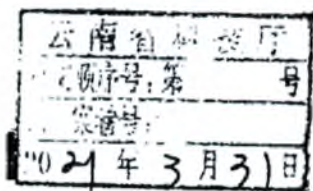 云南省科技厅
顺序号：第 号
案卷号：
2021年3月31日